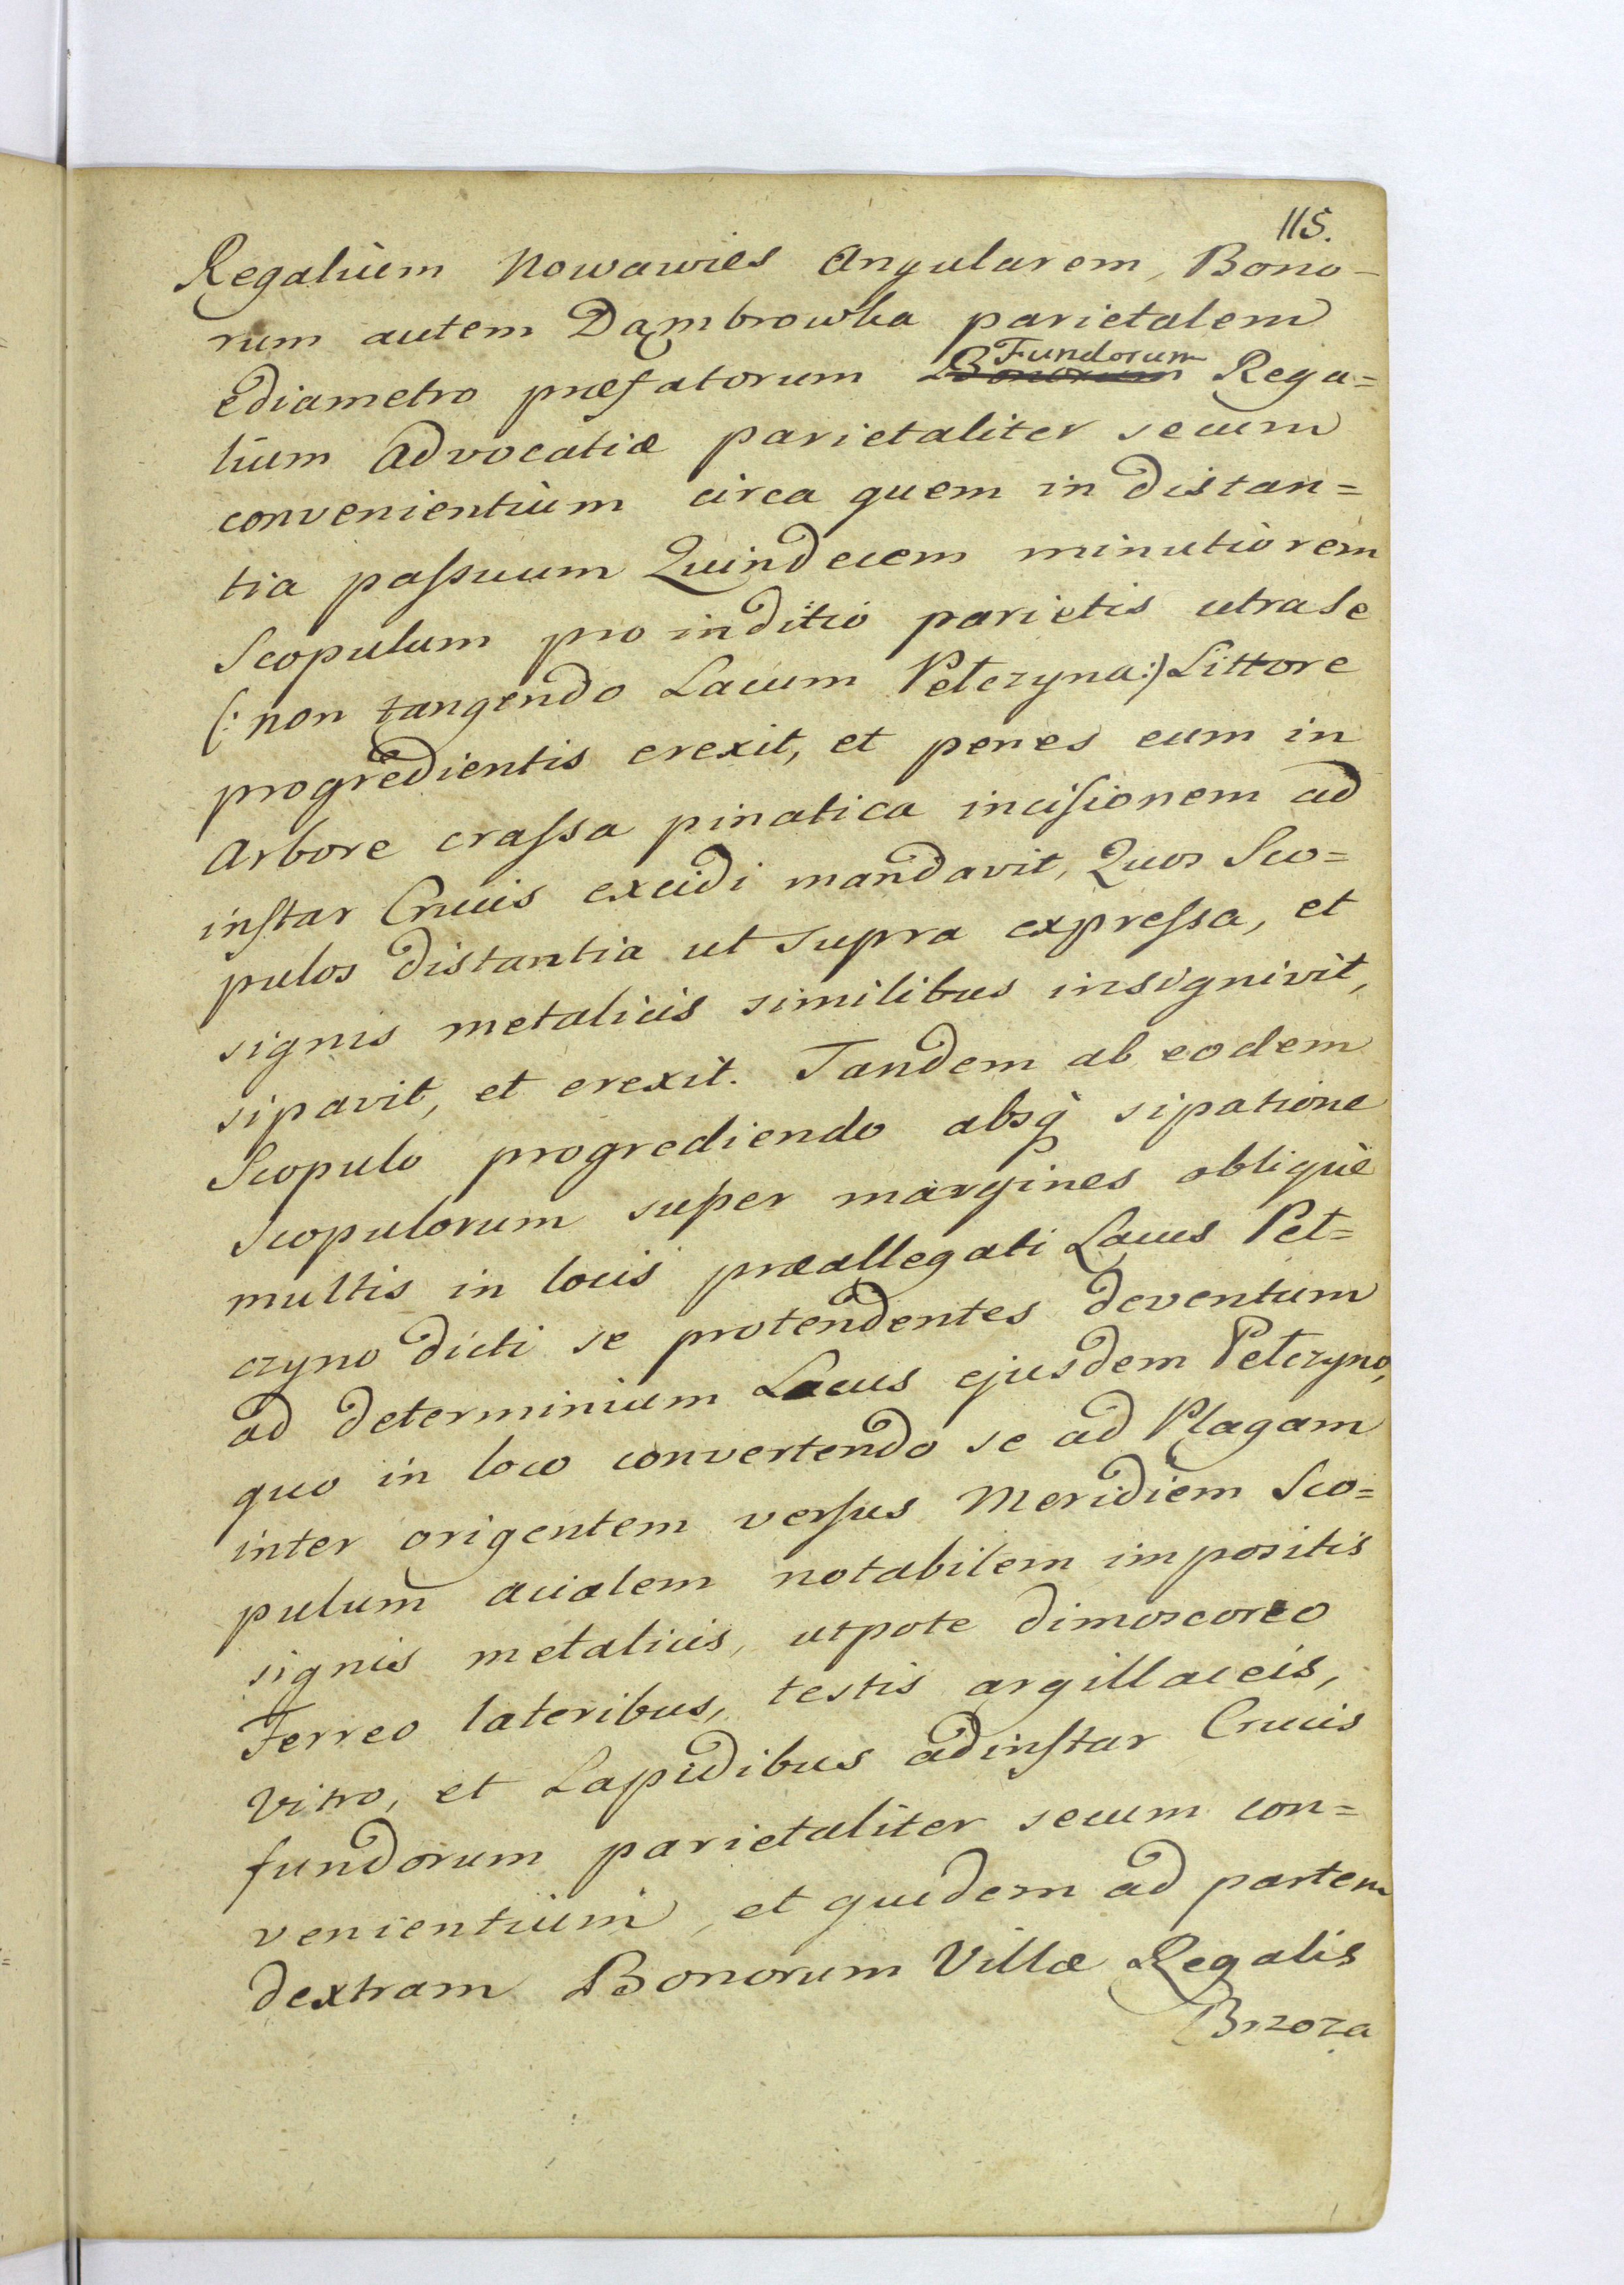 115.
Regalium Nowawies Angularem, Bono-
rum autem Dąmbrowka parietalem
ediametro præfatorum Fundorum Rega=
lium Advocatiæ parietaliter secum
convenientium circa quem in distan=
tia passuum Quindecem minutiorem
Scopulum pro inditio parietis utrase
(: non tangendo Lacum Petczyna:) Littore
progredientis erexit, et penes eum in
Arbore crassa pinatica incisionem ad
instar Crucis excidi mandavit, Quos Sco=
pulos distantia ut supra expressa, et
signis metalicis similibus insignivit,
sipavit, et erexit. Tandem ab eodem
Scopulo progrediendo absq̀ sipatione
Scopulorum super margines obliquè
multis in locis præallegati Lacus Pet=
czyno dicti se protendentes deventum
ad determinium Lacus ejusdem Petczyno,
quo in loco convertendo se ad Plagam
inter origentem versus Meridiem Sco=
pulum acialem notabilem impositis
signis metalicis, utpote dimoscoreo
Ferreo lateribus, testis argillaceis,
Vitro, et Lapidibus adinstar Crucis
fundorum parietaliter secum con=
venientium, et quidem ad partem
dextram Bonorum Villæ Regalis
Brzoza